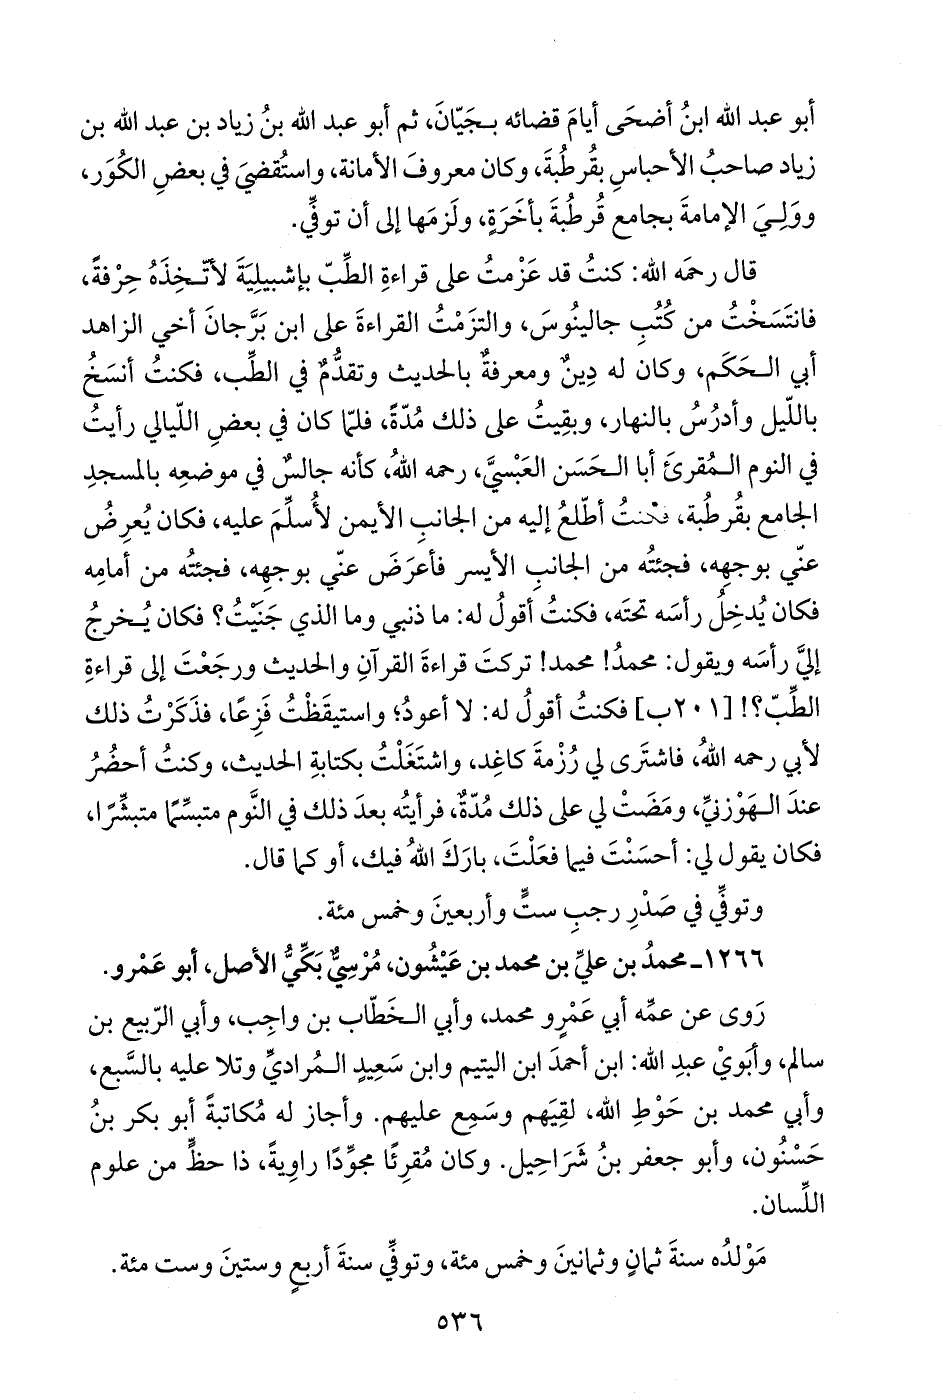 أبو عبد الله ابنُ أضحَى أيامَ قضائه بجَيّانَ، ثم أبو عبد الله بنُ زياد بن عبد الله بن
زياد صاحبُ الأحباسِ بقُرطُبةَ، وكان معروفَ الأمانة، واستُقضيَ في بعضِ الكُوَر،
ووَلِيَ الإمامةَ بجامع قُرطُبةَ بأخَرَةٍ، ولَزِمَها إلى أن توفِّي.
قال رحمَه الله: كنتُ قد عَزْمتُ على قراءةِ الطِّبّ بإشبيلِيَةَ لأتّخِذَهُ حِرْفةً،
فانتَسَخْتُ من كُتُبِ جالينُوسَ، والتزَمْتُ القراءةَ على ابن بَرَّجانَ أخي الزاهد
أبي الحَكَم، وكان له دِينٌ ومعرفةٌ بالحديث وتقدُّمٌ في الطِّب، فكنتُ أنسَخُ
باللّيل وأدرُسُ بالنهار، وبقِيتُ على ذلك مُدّةً، فلمّا كان في بعضِ اللّيالي رأيتُ
في النوم المُقرئَ أبا الحَسَن العَبْسيَّ، رحمه اللهُ، كأنه جالسٌ في موضعِه بالمسجدِ
الجامع بقُرطُبة، فكنتُ أطّلعُ إليه من الجانبِ الأيمن لأُسلِّمَ عليه، فكان يُعرِضُ
عنّي بوجهِه، فجئتُه من الجانبِ الأيسر فأعرَضَ عنّي بوجهِه، فجئتُه من أمامِه
فكان يُدخِلُ رأسَه تحتَه، فكنتُ أقولُ له: ما ذنبي وما الذي جَنَيْتُ؟ فكان يُخرجُ
إليَّ رأسَه ويقول: محمدُ! محمد! تركتَ قراءةَ القرآنِ والحديث ورجَعْتَ إلى قراءةِ
الطِّبّ؟! [٢٠١ب] فكنتُ أقولُ له: لا أعودُ؛ واستيقَظْتُ فَزِعًا، فذَكَرْتُ ذلك
لأبي رحمه اللهُ، فاشترى لي رُزْمةَ كاغِد، واشتَغَلْتُ بكتابةِ الحديث، وكنتُ أحضُرُ
عندَ الهَوْزنيِّ، ومَضَتْ لي على ذلك مُدّةٌ، فرأيتُه بعدَ ذلك في النَّوم متبسِّمًا متبشِّرًا،
فكان يقول لي: أحسَنْتَ فيما فعَلْتَ، بارَكَ اللهُ فيك، أو كما قال.
وتوفِّي في صَدْرِ رجبِ ستٍّ وأربعينَ وخمس مئة.
١٢٦٦- محمدُ بن عليِّ بن محمد بن عَيْشُون، مُرْسِيٌّ بَكِّيُّ الأصل، أبو عَمْرو.
رَوى عن عمِّه أبي عَمْرٍو محمد، وأبي الخَطّاب بن واجِب، وأبي الرّبيع بن
سالم، وأبَويْ عبدِ الله: ابن أحمدَ ابن اليتيم وابن سَعِيدٍ المُراديِّ وتلا عليه بالسَّبع،
وأبي محمد بن حَوْطِ الله، لقِيَهم وسَمِع عليهم. وأجاز له مُكاتبةً أبو بكر بنُ
حَسْنُون، وأبو جعفر بنُ شَرَاحِيل. وكان مُقرِئًا مجوِّدًا راوِيةً، ذا حظٍّ من علوم
اللِّسان.
مَوْلدُه سنةَ ثمانٍ وثمانينَ وخمس مئة، وتوفِّي سنةَ أربعٍ وستينَ وست مئة.
٥٣٦